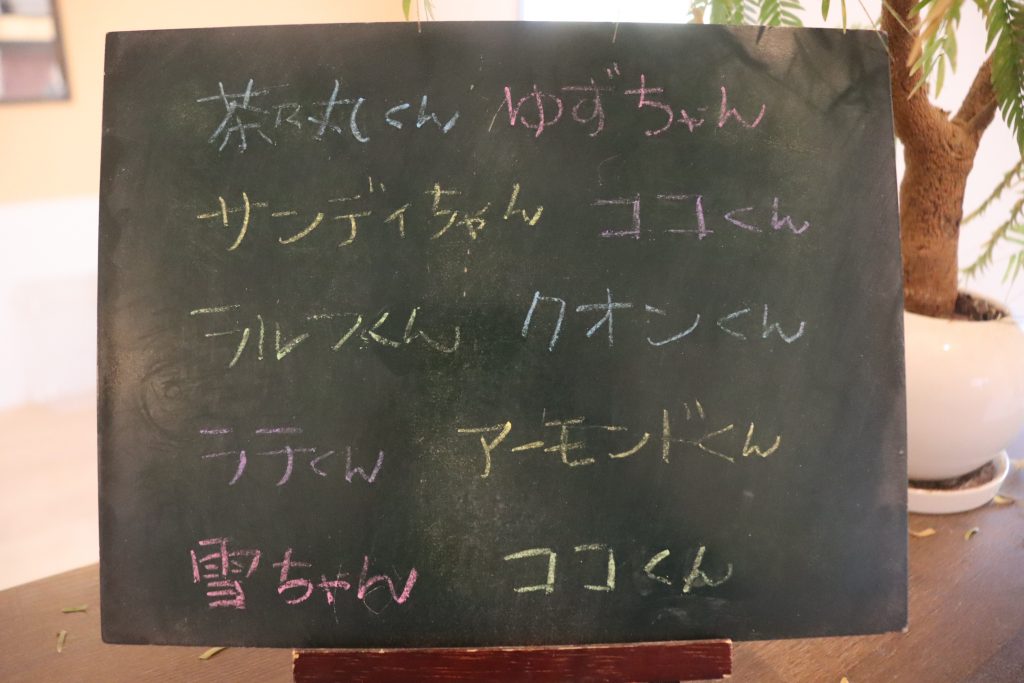 茶々丸くん ゆずちゃん
サンディちゃん ココくん
ラルフくん クオンくん
ラテくん アーモンドくん
雪ちゃん ココくん